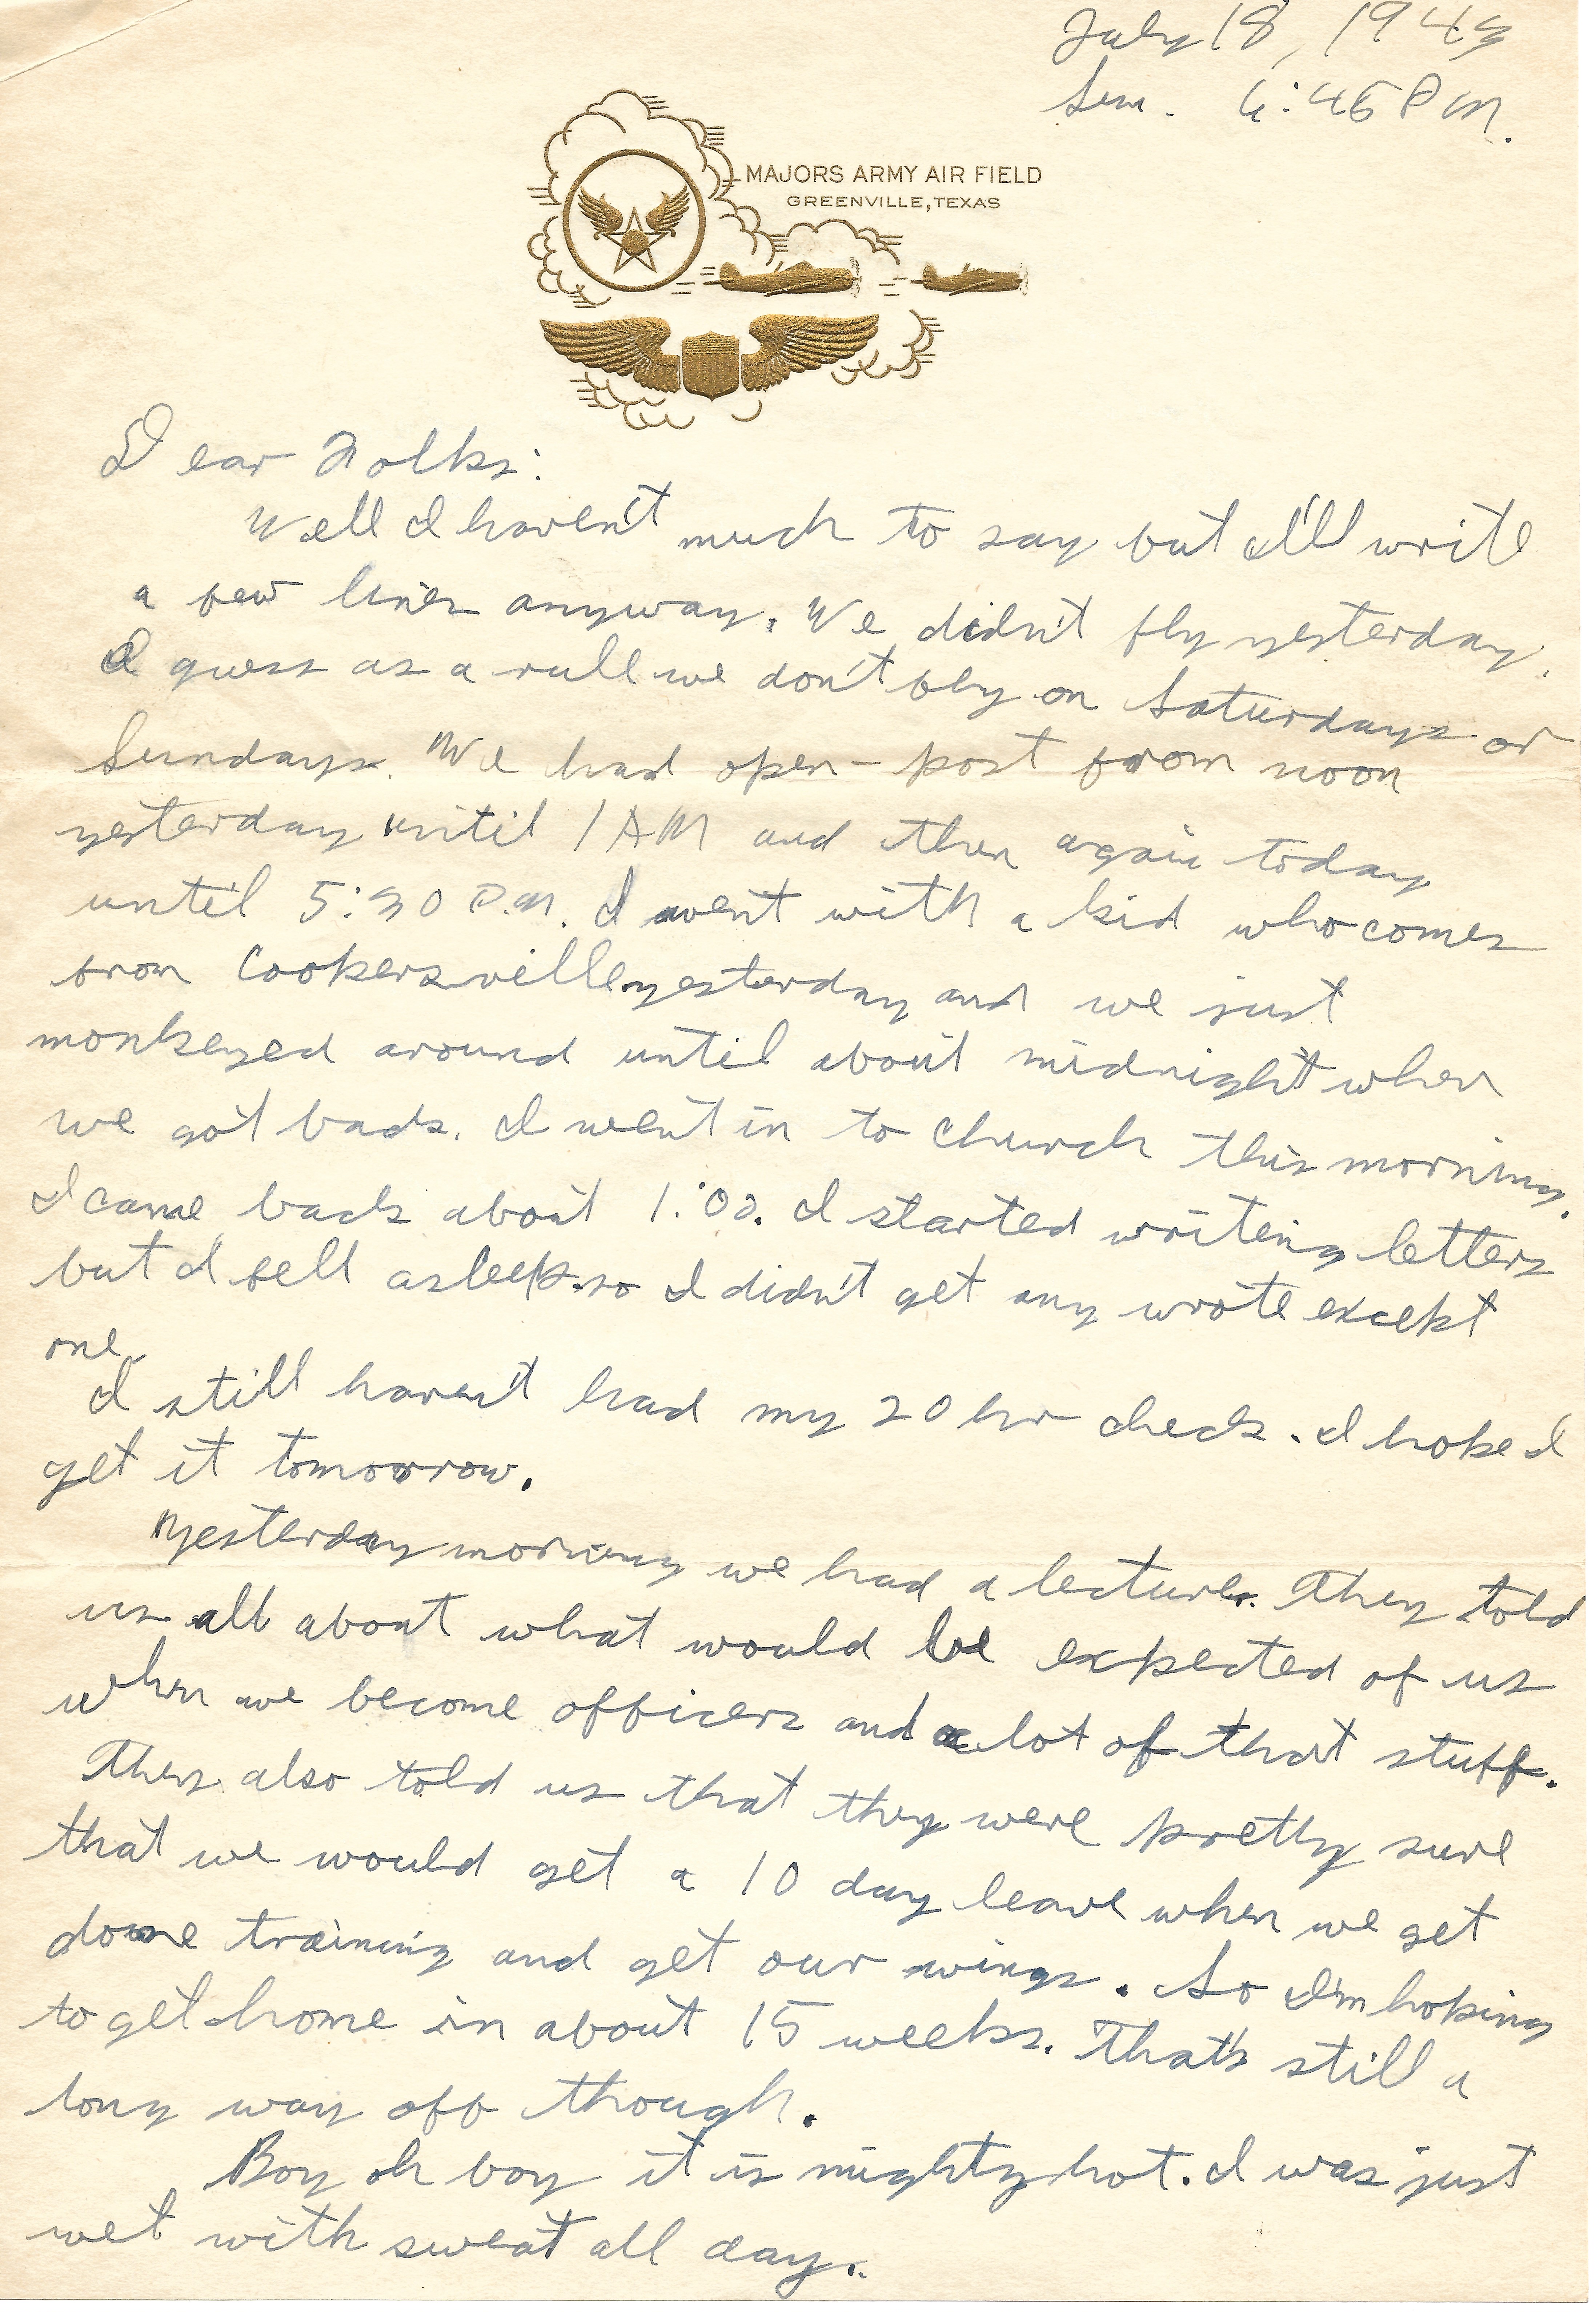 July 18, 1943
Sun. 6:45 P M.
MAJORS ARMY AIR FIELD
GREENVILLE, TEXAS
Dear Folks:
Well I haven't much to say but I'll write
a few lines anyway. We didn't fly yesterday.
I guess as a rule we don't fly on Saturdays or
Sundays. We had open-post from noon
yesterday until 1 AM and then again today
until 5:30 P.M. I went with a kid who comes
from Cookersville yesterday and we just
monkeyed around until about midnight when
we got back. I went in to church this morning.
I came back about 1:00. I started writing letters
but I fell asleep so I didn't get any wrote except
one.
I still haven't had my 20 hr check. I hope I
get it tomorrow.
Yesterday morning we had a lecture. They told
us all about what would be expected of us
when we become officers and a lot of that stuff.
They also told us that they were pretty sure
that we would get a 10 day leave when we get
done training and get our wings. So I'm hoping
to get home in about 15 weeks. That's still a
long way off though.
Boy oh boy it is mighty hot. I was just
wet with sweat all day.